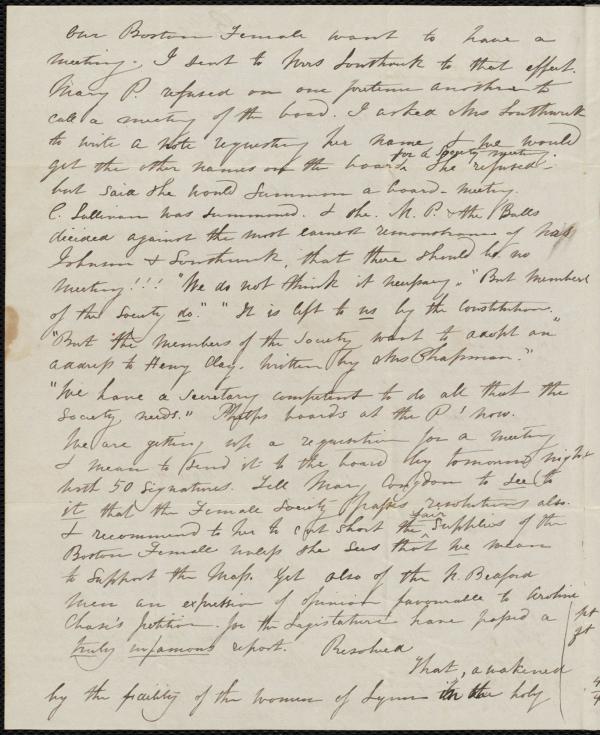 Our Boston Female want to have a
meeting. I sent to Mrs Southwick to that effect.
Mary P. refused on one pretence another to
call a meeting of the board. I asked Mrs Southwick
to write a note requesting her name & we would
get the other names on the board for a society meeting. She refused -
but said she would summon a board-meeting.
C. Sullivan was summoned. & she. M. P. & the Balls
decided against the most earnest remonstrance of Mrs
Johnson & Southwick, that there should be no
meeting!!! "We do not think it necessary." "But members
of the society do." "It is left to us by the Constitution.
"But the members of the society want to adopt an
address to Henry Clay. Written by Mrs Chapman."
"We have a secretary competent to do all that the
society needs." Phelps boards at the P! now.
We are getting up a requisition for a meeting
& I mean to send it to the board by tomorrow night
with 50 signatures. Tell Mary Congdon to see to
it that the Female Society passes resolutions also.
& recommend to her to cut short the fair supplies of the
Boston Female unless she sees that we mean
to support the Mass. Get also of the N. Bedford
men an expression of opinion favourable to Aroline
Chase's petition. for the Legislature have passed a
truly infamous report. Resolved
That, awakened
by the fidelity of the women of Lynn in the holy